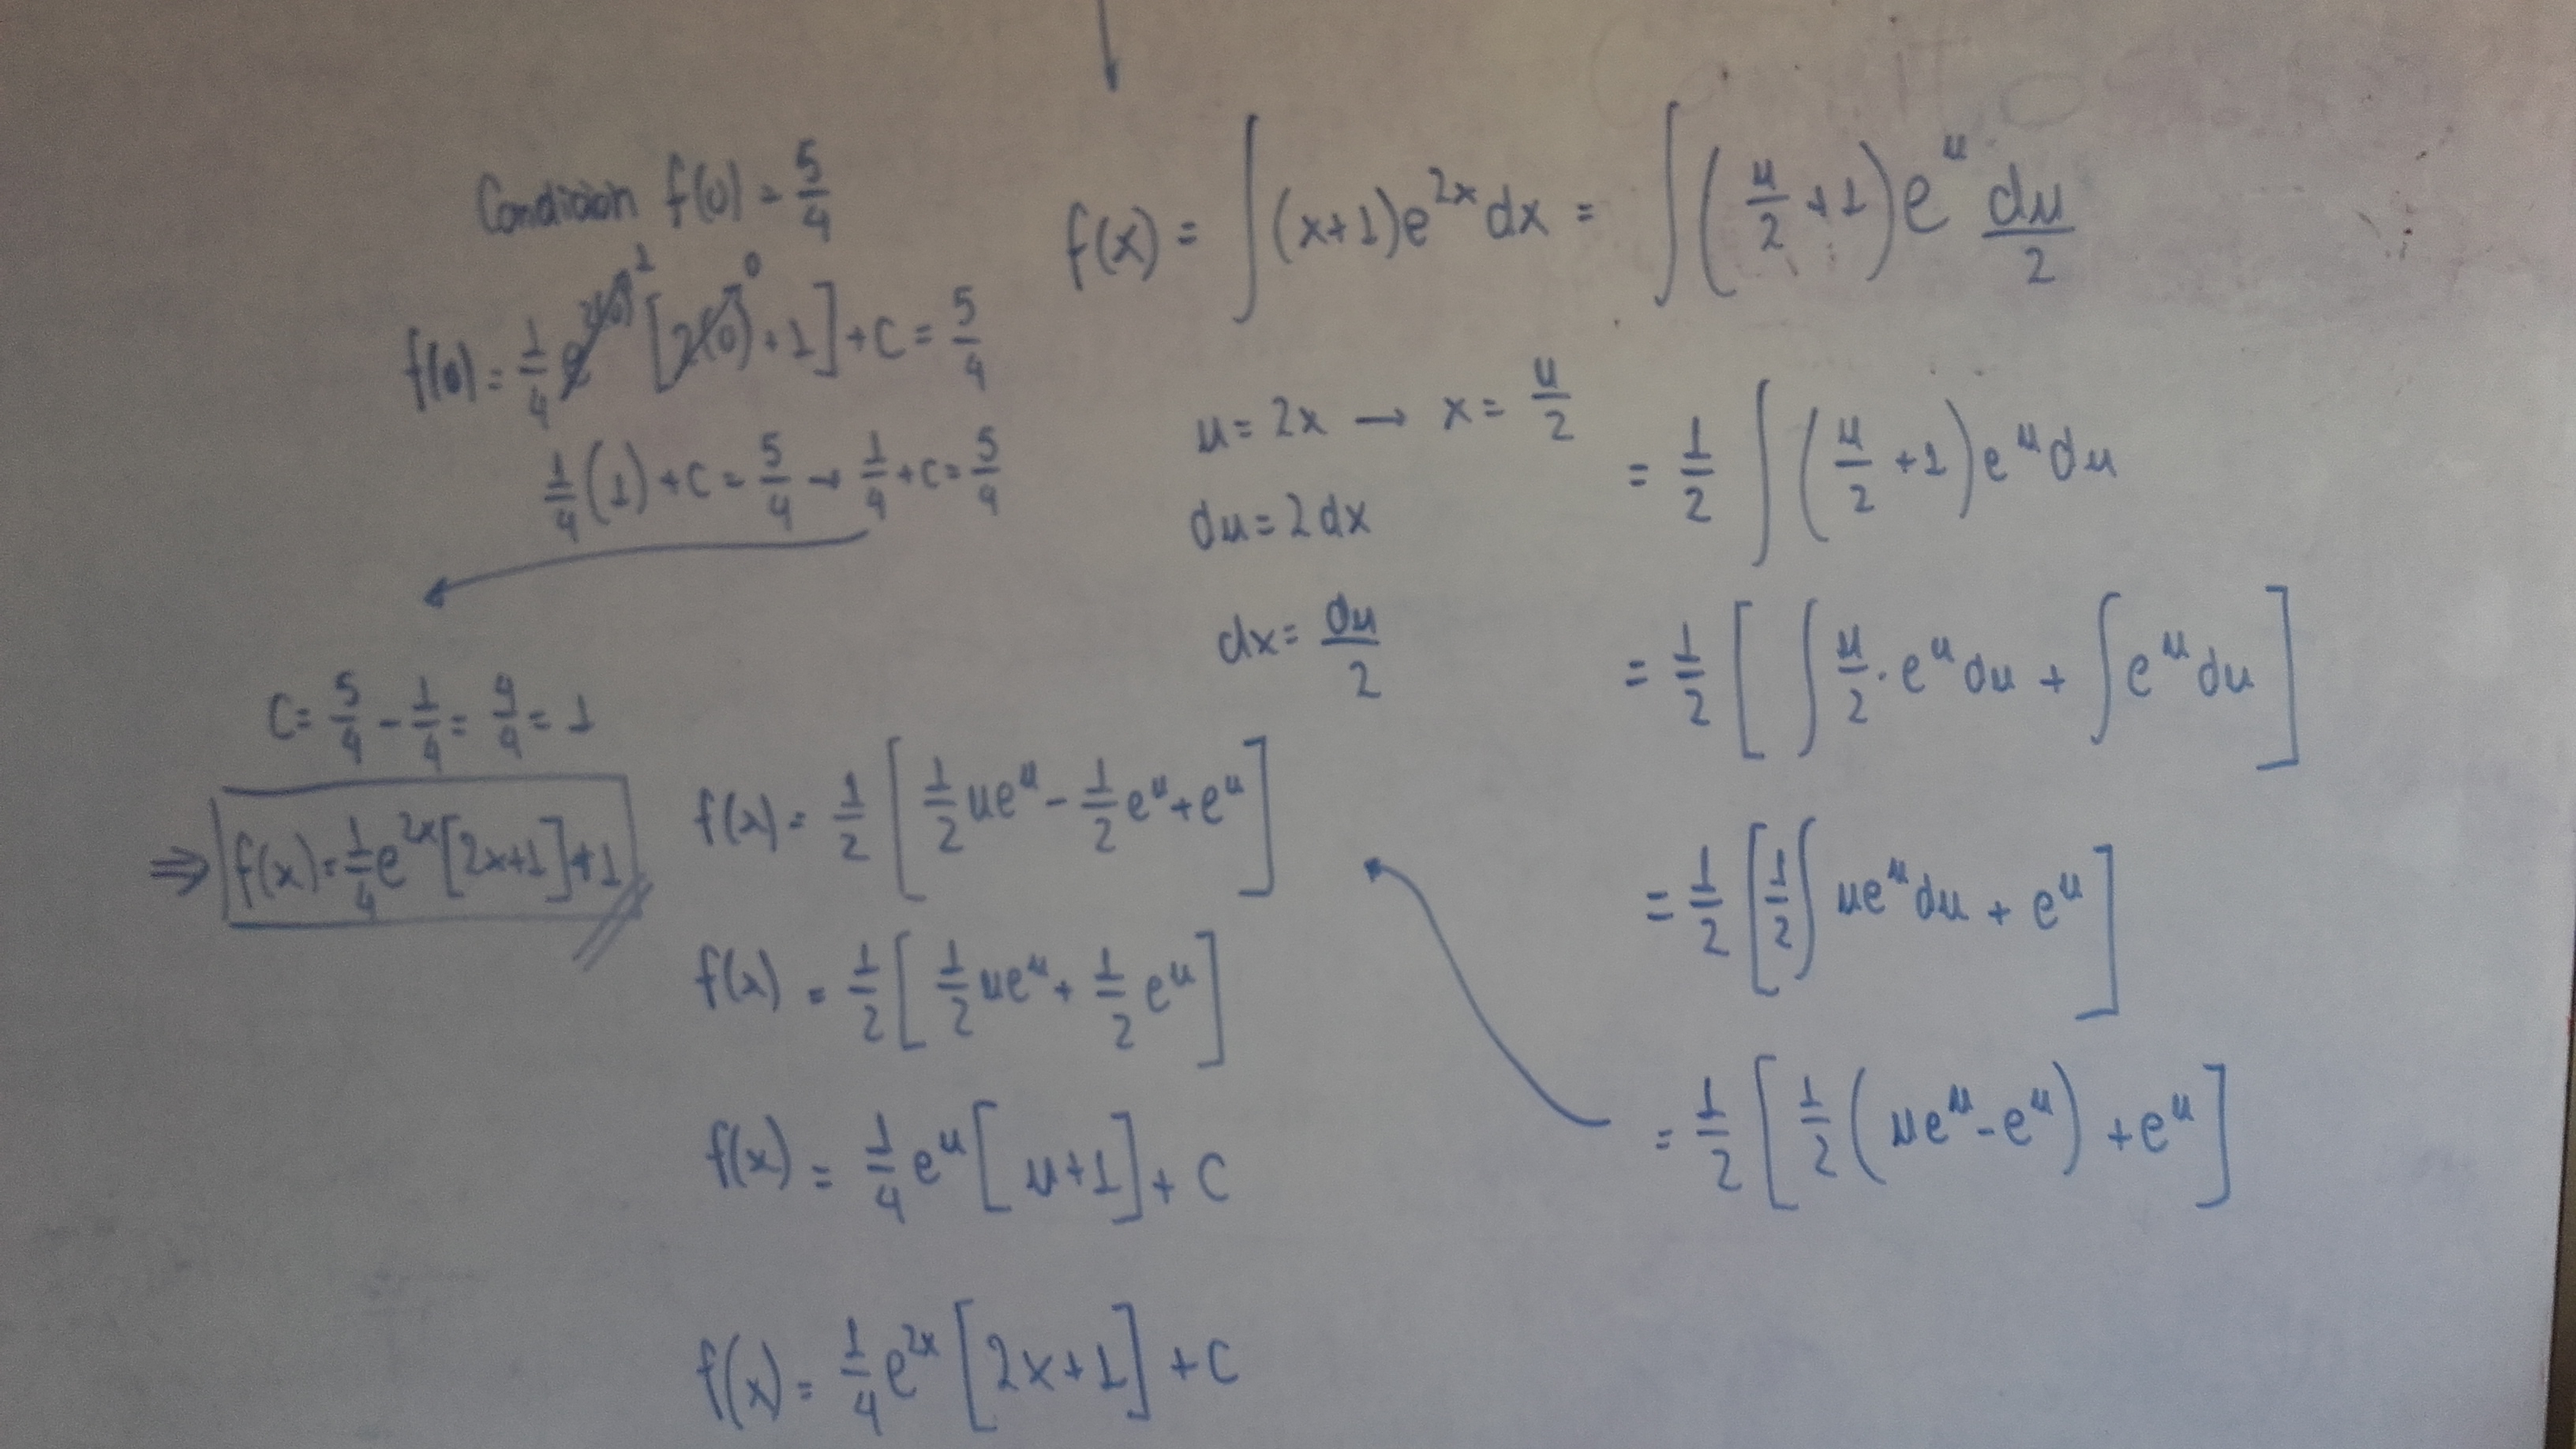 f(x) = ∫(x+1)e^{2x}dx = ∫(u/2 + 1)e^u du/2
u = 2x → x = u/2
du = 2dx
dx = du/2
= 1/2 ∫(u/2 + 1)e^u du
= 1/2 [∫ u/2 · e^u du + ∫e^u du]
= 1/2 [1/2 ∫ue^u du + e^u]
= 1/2 [1/2 (ue^u - e^u) + e^u]
f(x) = 1/2 [1/2 ue^u - 1/2 e^u + e^u]
f(x) = 1/2 [1/2 ue^u + 1/2 e^u]
f(x) = 1/4 e^u [u+1] + C
f(x) = 1/4 e^{2x} [2x+1] + C
Condicion f(0) = 5/4
f(0) = 1/4 e^{2(0)} 1 [2(0) 0 + 1] + C = 5/4
1/4 (1) + C = 5/4 → 1/4 + C = 5/4
C = 5/4 - 1/4 = 4/4 = 1
⇒ f(x) = 1/4 e^{2x}[2x+1] + 1